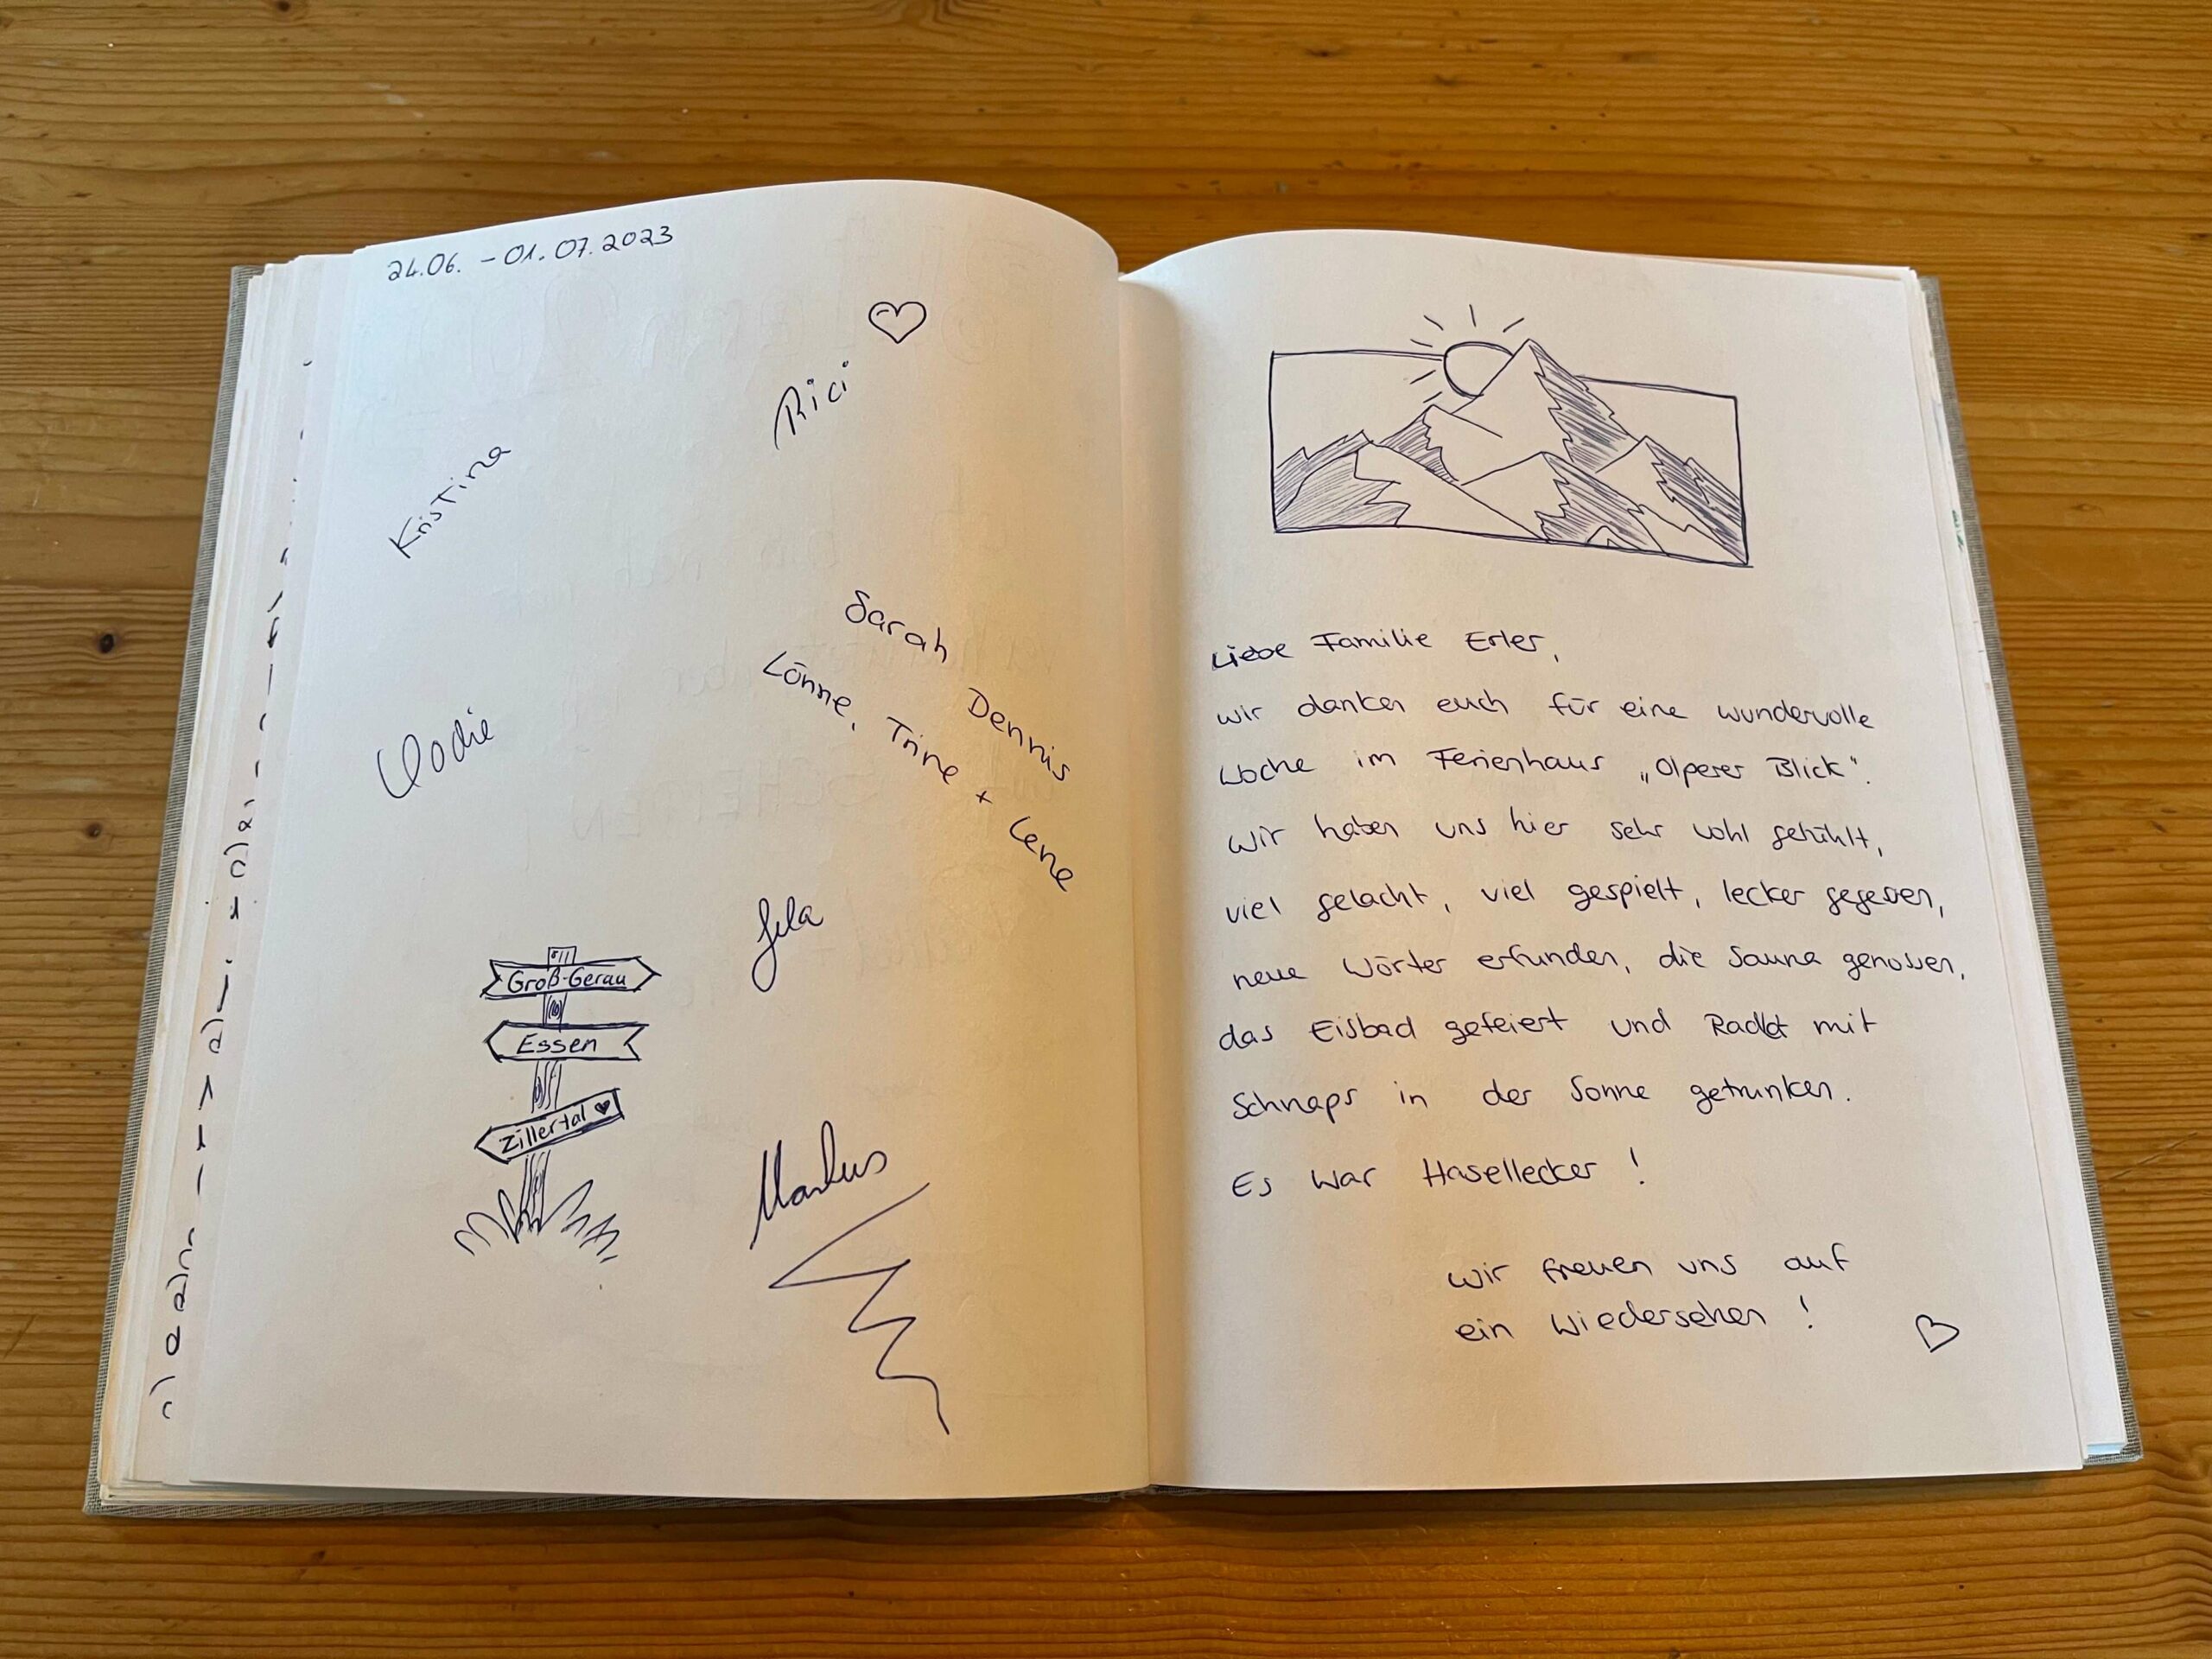 24.06. - 01.07.2023
Rici
Kristina
Sarah Dennis
Lönne, Trine + Lene
Jela
Groß-Gerau
Essen
Zillertal
Markus
Liebe Familie Erler,
wir danken euch für eine wundervolle
Woche im Ferienhaus „Olperer Blick“.
Wir haben uns hier sehr wohl gefühlt,
viel gelacht, viel gespielt, lecker gegessen,
neue Wörter erfunden, die Sauna genossen,
das Eisbad gefeiert und mit
Schnaps in der Sonne getrunken.
Es war Hasellecker!
Wir freuen uns auf
ein Wiedersehen!